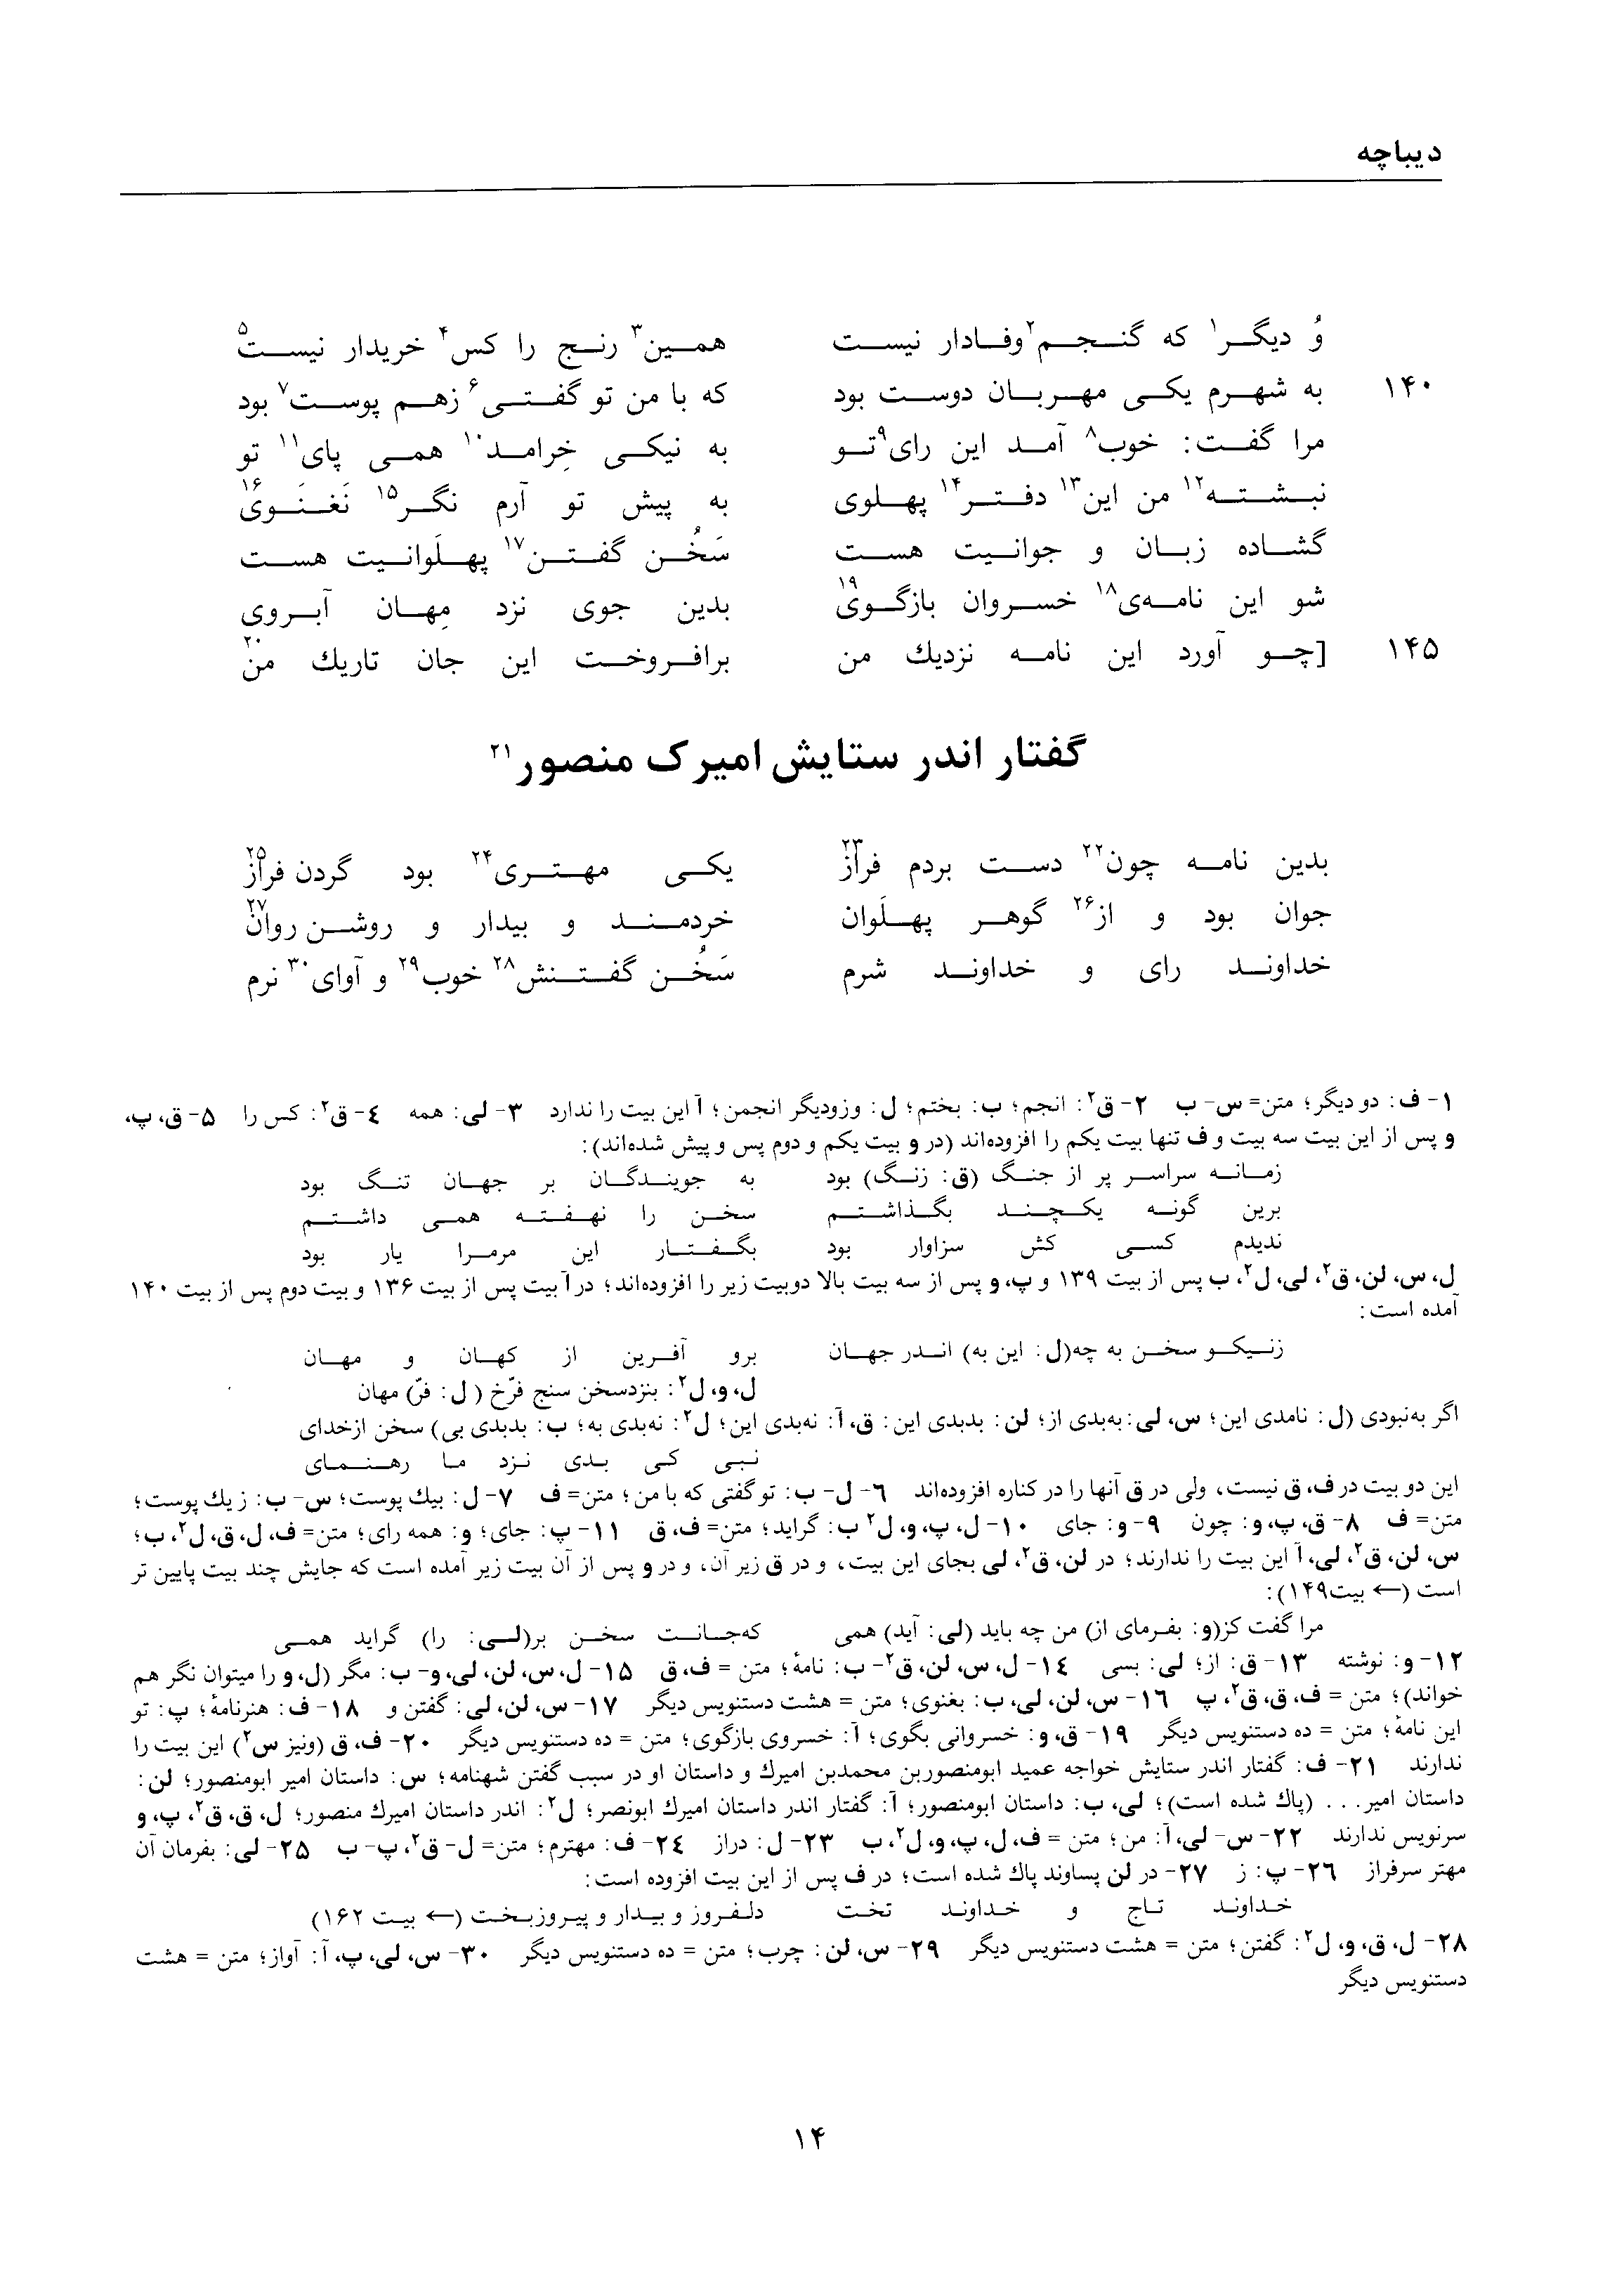 دیباچه
وُ دیگر۱ که گنجم۲ وفادار نیست همین۳ رنج را کس۴ خریدار نیست۵
۱۴۰ به شهرم یکی مهربان دوست بود که با من تو گفتی۶ زهم پوست۷ بود
مرا گفت: خوب۸ آمد این رای۹ تو به نیکی خِرامد۱۰ همی پای۱۱ تو
نبشته۱۲ من این۱۳ دفتر۱۴ پهلوی به پیش تو آرم نگر۱۵ نَغنَوی۱۶
گشاده زبان و جوانیت هست سَخُن گفتن۱۷ پهلَوانیت هست
شو این نامه‌ی۱۸ خسروان بازگوی۱۹ بدین جوی نزد مِهان آبروی
۱۴۵ [چو آورد این نامه نزدیك من برافروخت این جان تاریك من۲۰
گفتار اندر ستایش امیرک منصور۲۱
بدین نامه چون۲۲ دست بردم فراز۲۳ یکی مهتری۲۴ بود گردن فراز۲۵
جوان بود و از۲۶ گوهر پهلَوان خردمند و بیدار و روشن روان۲۷
خداوند رای و خداوند شرم سَخُن گفتنش۲۸ خوب۲۹ و آوای۳۰ نرم
۱- ف: دو دیگر؛ متن= س- ب ۲- ق۲: انجم؛ ب: بختم؛ ل: وزودیگر انجمن؛ آ این بیت را ندارد ۳- لی: همه ٤- ق۲: کس را ۵- ق، پ،
و پس از این بیت سه بیت و ف تنها بیت یکم را افزوده‌اند (در و بیت یکم و دوم پس و پیش شده‌اند):
زمانه سراسر پر از جنگ (ق: زنگ) بود به جویندگان بر جهان تنگ بود
برین گونه یکچند بگذاشتم سخن را نهفته همی داشتم
ندیدم کسی کش سزاوار بود بگفتار این مرمرا یار بود
ل، س، لن، ق۲، لی، ل۲، ب پس از بیت ۱۳۹ و پ، و پس از سه بیت بالا دوبیت زیر را افزوده‌اند؛ در آ بیت پس از بیت ۱۳۶ و بیت دوم پس از بیت ۱۴۰
آمده است:
زنیکو سخن به چه(ل: این به) اندر جهان برو آفرین از کهان و مهان
ل، و، ل۲: بنزدسخن سنج فرّخ (ل: فرّ) مهان
اگر به‌نبودی (ل: نامدی این؛ س، لی: به‌بدی از؛ لن: بدبدی این: ق، آ: نه‌بدی این؛ ل۲: نه‌بدی به؛ ب: بدبدی بی) سخن ازخدای
نبی کی بدی نزد ما رهنمای
این دو بیت در ف، ق نیست، ولی در ق آنها را در کناره افزوده‌اند ٦- ل- ب: توگفتی که با من؛ متن= ف ۷- ل: بیك پوست؛ س- ب: زیك پوست؛
متن= ف ۸- ق، پ، و: چون ۹- و: جای ۱۰- ل، پ، و، ل۲ ب: گراید؛ متن= ف، ق ۱۱- پ: جای؛ و: همه رای؛ متن= ف، ل، ق، ل۲، ب؛
س، لن، ق۲، لی، آ این بیت را ندارند؛ در لن، ق۲، لی بجای این بیت، و در ق زیر آن، و در و پس از آن بیت زیر آمده است که جایش چند بیت پایین تر
است (← بیت۱۴۹):
مرا گفت کز(و: بفرمای از) من چه باید (لی: آید) همی که‌جانت سخن بر(لی: را) گراید همی
۱۲- و: نوشته ۱۳- ق: از؛ لی: بسی ۱٤- ل، س، لن، ق۲- ب: نامهٔ؛ متن = ف، ق ۱۵- ل، س، لن، لی، و- ب: مگر (ل، و را میتوان نگر هم
خواند)؛ متن = ف، ق، ق۲، پ ۱٦- س، لن، لی، ب: بغنوی؛ متن = هشت دستنویس دیگر ۱۷- س، لن، لی: گفتن و ۱۸- ف: هنرنامهٔ؛ پ: تو
این نامهٔ؛ متن = ده دستنویس دیگر ۱۹- ق، و: خسروانی بگوی؛ آ: خسروی بازگوی؛ متن = ده دستنویس دیگر ۲۰- ف، ق (ونیز س۲) این بیت را
ندارند ۲۱- ف: گفتار اندر ستایش خواجه عمید ابومنصوربن محمدبن امیرك و داستان او در سبب گفتن شهنامه؛ س: داستان امیر ابومنصور؛ لن:
داستان امیر... (پاك شده است)؛ لی، ب: داستان ابومنصور؛ آ: گفتار اندر داستان امیرك ابونصر؛ ل۲: اندر داستان امیرك منصور؛ ل، ق، ق۲، پ، و
سرنویس ندارند ۲۲- س- لی، آ: من؛ متن = ف، ل، پ، و، ل۲، ب ۲۳- ل: دراز ۲٤- ف: مهترم؛ متن= ل- ق۲، پ- ب ۲۵- لی: بفرمان آن
مهتر سرفراز ۲٦- پ: ز ۲۷- در لن پساوند پاك شده است؛ در ف پس از این بیت افزوده است:
خداوند تاج و خداوند تخت دلفروز و بیدار و پیروزبخت (← بیت ۱۶۲)
۲۸- ل، ق، و، ل۲: گفتن؛ متن = هشت دستنویس دیگر ۲۹- س، لن: چرب؛ متن = ده دستنویس دیگر ۳۰- س، لی، پ، آ: آواز؛ متن = هشت
دستنویس دیگر
۱۴